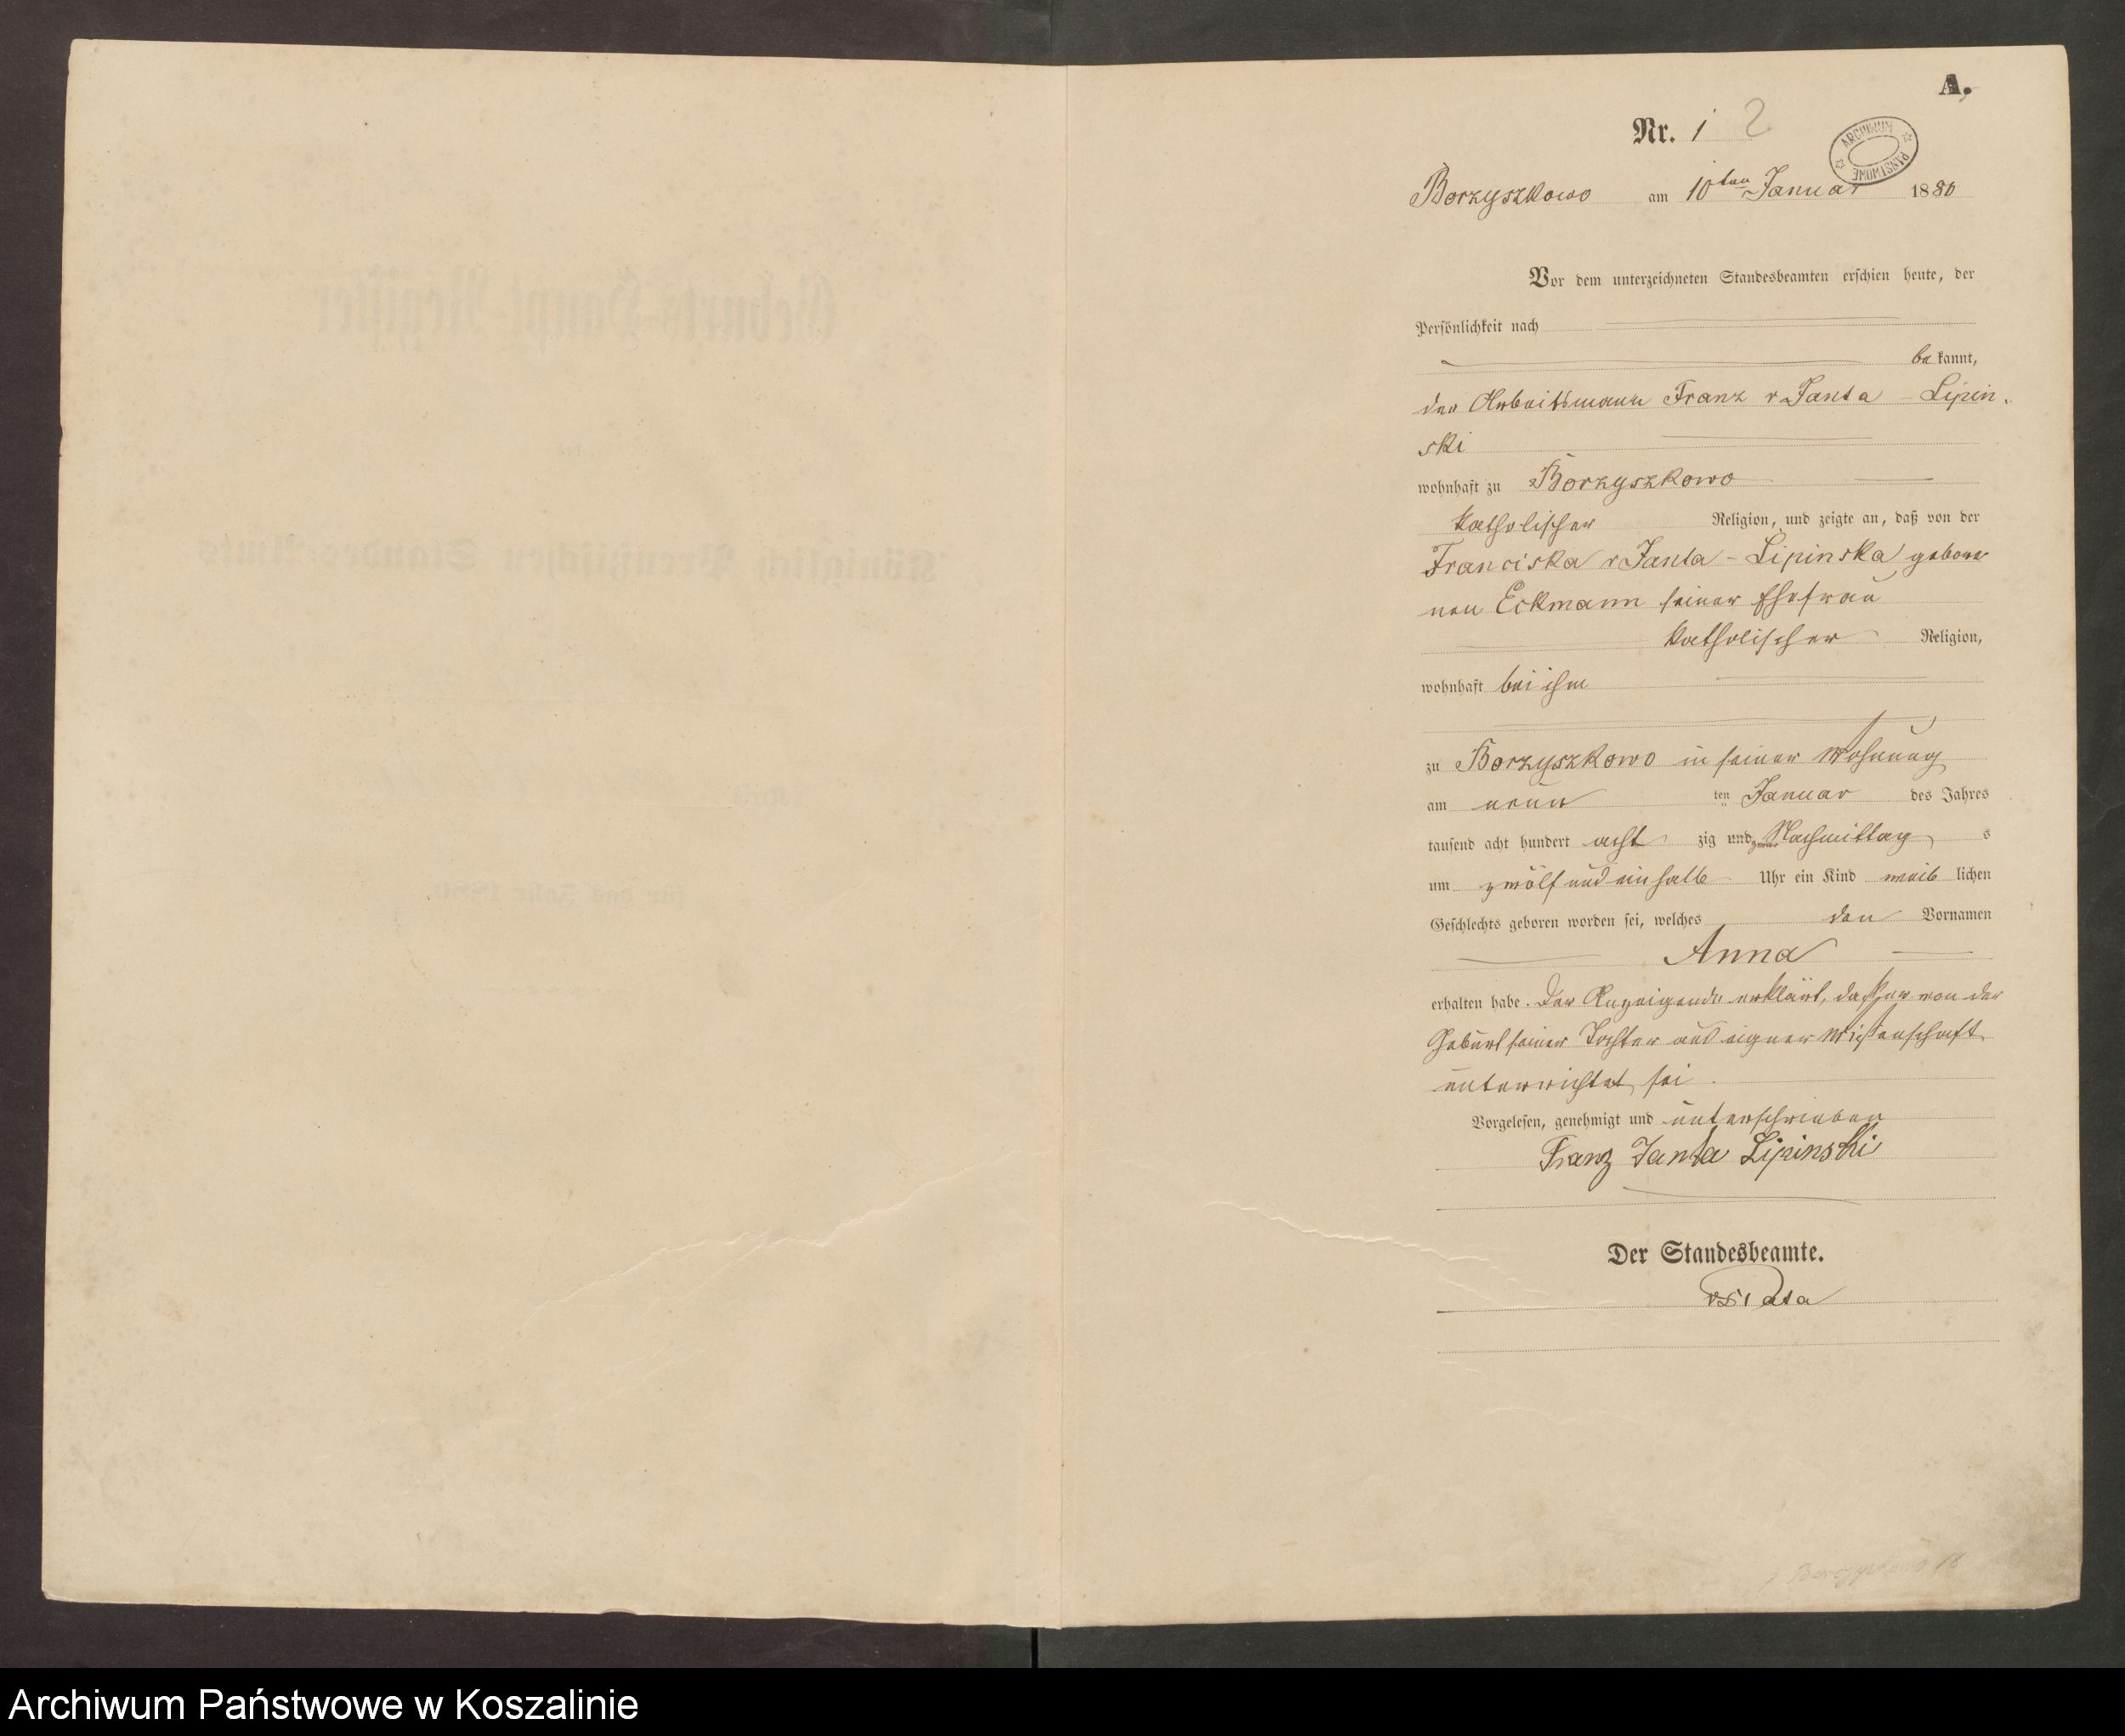 A.
Nr. 1 2
ARCHIWUM PAŃSTWOWE
Borzyszkowo am 10ten Januar 1880
Vor dem unterzeichneten Standesbeamten erschien heute, der
Persönlichkeit nach
be kannt,
der Arbeitsmann Franz v Janta - Lipin-
ski
wohnhaft zu Borzyszkowo
katholischer Religion, und zeigte an, daß von der
Franciska v Janta - Lipinska gebore
nen Eckmann seiner Ehefrau
katholischer Religion,
wohnhaft bei ihm
zu Borzyszkowo in seiner Wohnung
am neun ten Januar des Jahres
tausend acht hundert acht zig und zwar Nachmittag s
um zwölf und ein halb Uhr ein Kind weib lichen
Geschlechts geboren worden sei, welches den Vornamen
Anna
erhalten habe. Der Anzeigende erklärt, daß er von der
Geburt seiner Tochter aus eigner Wißenschaft
unterrichtet sei.
Vorgelesen, genehmigt und unterschrieben
Franz Janta Lipinski
Der Standesbeamte.
Archiwum Państwowe w Koszalinie